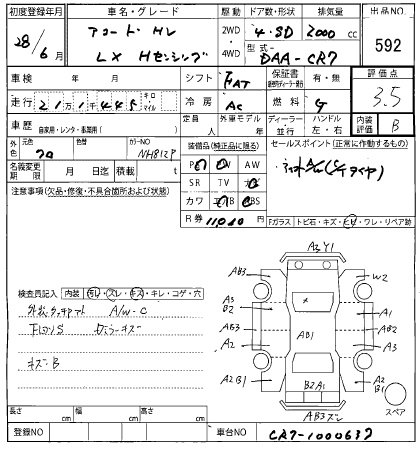 初度登録年月 車名・グレード 駆動 ドア数・形状 排気量 出品NO
28年6月 アコード HV 2WD 4・SD 2000cc 592
LX Hセンシング 4WD 型式 DAA-CR7
車検 年 月 シフト FAT 保証書 有・無 評価点 3.5
走行 21万1千445 キロ マイル 冷房 AC 燃料 G
車歴 自家用・レンタ・事業用( ) 定員 人 外車モデル 年 ディーラー 並行 ハンドル 左・右 内装評価 B
外色 元色 色替 カラーNO NH812P 装備品(純正品に限る) セールスポイント(正常に作動するもの)
名義変更期限 月 日迄 積載 t PS PW AW
SR TV
注意事項(欠品・修復・不具合箇所および状態) カワ
R券 11010 Fガラス トビ石・キズ・ヒビ・ワレ・リペア跡
A3 Y1
AB3 W2
検査員記入 内装 汚レ・スレ・キズ・キレ・コゲ・穴
A3 B2 A1
A/W-C
AB3 AB1 B2
A2 A3
キズ・B
A2B1 B2A1 A2 B1
スペア
AB3ズレ
長さ cm 幅 cm 高さ cm
登録NO 車台NO CR7-1000637